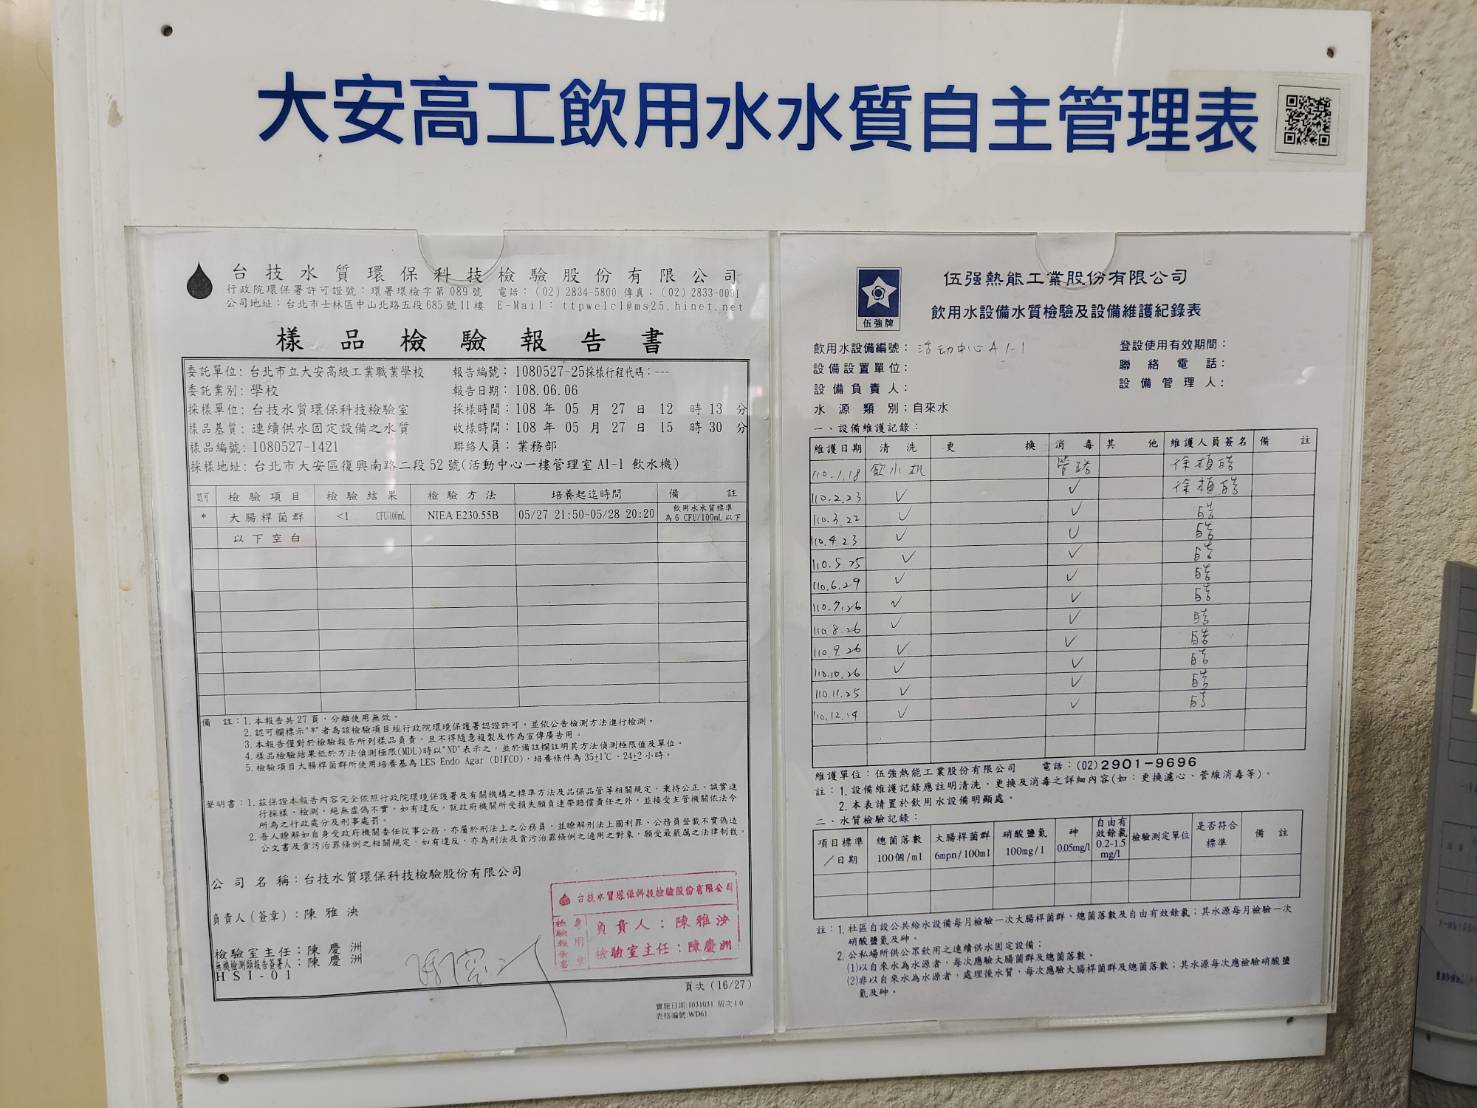 大安高工飲用水水質自主管理表
台技水質環保科技檢驗股份有限公司
行政院環保署許可證號：環署環檢字第089號 電話：(02) 2834-5800 傳真：(02) 2833-0091
公司地址：台北市士林區中山北路五段685號11樓 E-Mail： ttpwelcl@ms25.hinet.net
樣品檢驗報告書
委託單位：台北市立大安高級工業職業學校 報告編號：1080527-25採樣行程代碼：---
委託業別：學校 報告日期：108.06.06
採樣單位：台技水質環保科技檢驗室 採樣時間：108 年 05 月 27 日 12 時 13 分
樣品基質：連續供水固定設備之水質 收樣時間：108 年 05 月 27 日 15 時 30 分
樣品編號：1080527-1421 聯絡人員：業務部
採樣地址：台北市大安區復興南路二段52號(活動中心一樓管理室A1-1飲水機)
認可 檢驗項目 檢驗結果 檢驗方法 培養起迄時間 備註
* 大腸桿菌群 <1 CFU/100mL NIEA E230.55B 05/27 21:50-05/28 20:20 飲用水水質標準為6 CFU/100mL以下
以下空白
備 註：1.本報告共27頁，分離使用無效。
2.認可欄標示"*"者為該檢驗項目經行政院環境保護署認證許可，並依公告檢測方法進行檢測。
3.本報告僅對於檢驗報告所列樣品負責，且不得隨意複製及作為宣傳廣告用。
4.樣品檢驗結果低於方法偵測極限(MDL)時以"ND"表示之，並於備註欄註明其方法偵測極限值及單位。
5.檢驗項目大腸桿菌群所使用培養基為LES Endo Agar (DIFCO)，培養條件為35±1℃、24±2小時。
聲明書：1.茲保證本報告內容完全依照行政院環境保護署及有關機構之標準方法及品保品管等相關規定，秉持公正、誠實進
行採樣、檢測。絕無虛偽不實，如有違反，就政府機關所受損失願負連帶賠償責任之外，並接受主管機關依法令
所為之行政處分及刑事處罰。
2.吾人瞭解如自身受政府機關委任從事公務，亦屬於刑法上之公務員，並瞭解刑法上圖利罪、公務員登載不實偽造
公文書及貪污治罪條例之相關規定，如有違反，亦為刑法及貪污治罪條例之適用之對象，願受最嚴厲之法律制裁。
公司名稱：台技水質環保科技檢驗股份有限公司
負責人(簽章)：陳雅泱
檢驗室主任：陳慶洲
無機檢測類報告簽署人：陳慶洲
HSI-01
台技水質環保科技檢驗股份有限公司
負責人：陳雅泱
檢驗室主任：陳慶洲
頁次 (16/27)
實施日期:1031031 版次1.0
表格編號:WD61
伍強牌
伍强熱能工業股份有限公司
飲用水設備水質檢驗及設備維護紀錄表
飲用水設備編號：活動中心A1-1 登設使用有效期間：
設備設置單位： 聯絡電話：
設備負責人： 設備管理人：
水源類別：自來水
一、設備維護記錄：
維護日期 清洗 更換 消毒 其他 維護人員簽名 備註
110.1.18 飲水机 管路
110.2.23 ✓ ✓
110.3.22 ✓ ✓
110.4.23 ✓ ✓
110.5.25 ✓ ✓
110.6.29 ✓ ✓
110.7.26 ✓ ✓
110.8.26 ✓ ✓
110.9.26 ✓ ✓
110.10.26 ✓ ✓
110.11.25 ✓ ✓
110.12.14 ✓ ✓
維護單位：伍強熱能工業股份有限公司 電話：(02)2901-9696
註：1.設備維護記錄應註明清洗、更換及消毒之詳細內容(如：更換濾心、管線消毒等)。
2.本表請置於飲用水設備明顯處。
二、水質檢驗記錄：
項目標準/日期 總菌落數100個/ml 大腸桿菌群6mpn/100ml 硝酸鹽氮100mg/l 砷0.05mg/l 自由有效餘氯0.2-1.5mg/l 檢驗測定單位 是否符合標準 備註
註：1.社區自設公共給水設備每月檢驗一次大腸桿菌群、總菌落數及自由有效餘氯；其水源每月檢驗一次
硝酸鹽氮及砷。
2.公私場所供公眾飲用之連續供水固定設備；
(1)以自來水為水源者，每次應驗大腸菌群及總菌落數。
(2)非以自來水為水源者，處理後水質，每次應驗大腸桿菌群及總菌落數；其水源每次應檢驗硝酸鹽
氮及砷。